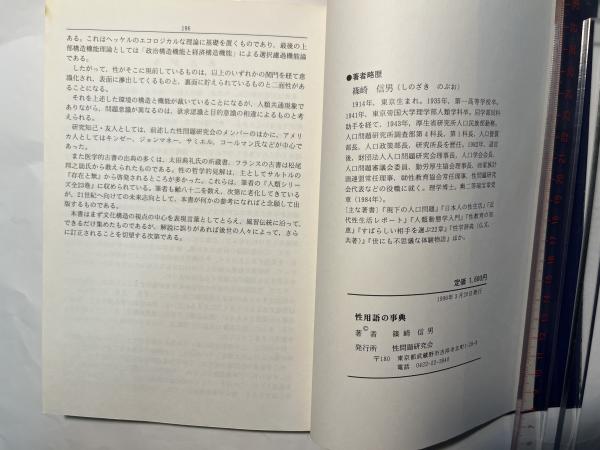 186
ある。これはヘッケルのエコロジカルな理論に基礎を置くものであり、最後の上
部構造機能理論としては「政治構造機能と経済構造機能」による選択濾過機能論
である。
したがって、性がそこに現前しているものは、以上のいずれかの関門を経て意
識化され、表面に滲出してくるものと、裏面に貯えられているものと二面性があ
ることになる。
それを上述した環境の構造と機能が裁いていることになるが、人類共通現象で
ありながら、問題意識が異なるのは、欲求認識と目的意識の相違によるものと考
えられる。
研究知己・友人としては、前述した性問題研究会のメンバーのほかに、アメリ
カ人としてはキンゼー、ジョンマネー、サミエル、コールマン氏などが中心で
あった。
また医学的古書の出典の多くは、太田典礼氏の所蔵書、フランスの古書は松尾
邦之助氏から教えられたものである。性の哲学的見解は、主としてサルトルの
『存在と無』から啓発されるところが多かった。これらは、筆者の『人類シリー
ズ全23巻』に収められている。筆者も齢八十二を数え、次第に老化してきている
が、21世紀へ向けての未来志向として、本書が何かの参考になればと念願して出
版するものである。
本書はまず文化構造の視点の中心を表現言葉としてとらえ、風習伝統に沿って、
できるだけ集めたものであるが、解説に誤りがあれば後世の人々によって、さら
に訂正されることを切望する次第である。
●著者略歴
篠崎 信男(しのざき のぶお)
1914年、東京生まれ。1935年、第一高等学校卒。
1941年、東京帝国大学理学部人類学科卒。同学部副科
助手を経て、1943年、厚生省研究所人口民族部勤務。
人口問題研究所調査部第4科長、第1科長、人口資質
部長、人口政策部長、研究所長を歴任。1982年、退官
後、財団法人人口問題研究会理事長、人口学会会長、
人口問題審議会委員、勤労厚生協会理事長、
会代表などの役職に就く。理学博士。勲二等瑞宝章受
章(1984年)。
〔主な著書〕『現下の人口問題』『日本人の性生活』『近
代性生活レポート』『人類動態学入門』『性教育の知
恵』『すばらしい相手を選ぶ22章』『性学辞典(仏文、
共著)』『世にも不思議な体験物語』ほか。
定価 1,600円
1996年3月20日発行
性用語の事典
©
著者 篠崎信男
発行所 性問題研究会
〒180 東京都武蔵野市吉祥寺北町
電話